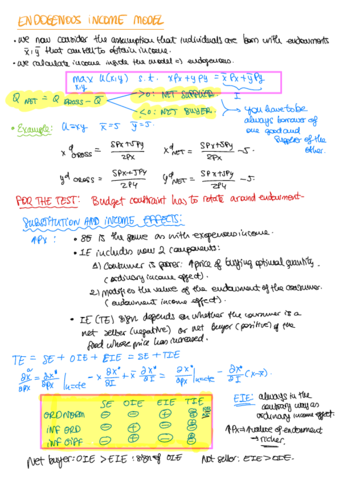 ENDOGENOUS INCOME MODEL
• we now consider the assumption that individuals are born with endowments
x̄, ȳ that can sell to obtain income.
• we calculate income inside the model → endogenous.
max u(x,y) s.t. xPx + yPy = x̄Px + ȳPy
x,y
I
Q NET = Q GROSS - Q̄
>0: NET
<0: NET BUYER.
↳ You have to be
always
one good and
of the
other.
• Example: U = xy x̄ = 5 ȳ = 5
x^d GROSS = 5Px+5Py / 2Px x^d NET = 5Px+5Py / 2Px - 5.
y^d GROSS = 5Px+5Py / 2Py y^d NET = 5Px+5Py / 2Py - 5.
FOR THE TEST: Budget constraint has to rotate around endowment.
SUBSTITUTION AND INCOME EFFECTS:
↑Px : • SE is the same as with exogenous income.
• IE includes now 2 components:
1) Consumer is poorer: ↑price of buying optimal quantity.
(ordinary income effect).
2) modifies the value of the endowment of the consumer.
(endowment income effect).
• IE (TE) sign depends on whether the consumer is a
net seller (negative) or net buyer (positive) of the
good whose price has increased.
TE = SE + OIE + EIE = SE + TIE
SE OIE EIE TIE
ORD NORM ⊖ ⊖ ⊕
INF ORD ⊖ ⊕ ⊖
INF GIFF ⊖ ⊕ ⊖
EIE: always in the
contrary way as
ordinary income effect:
↑Px → ↑value of endowment
→ richer.
Net buyer: OIE > EIE : sign of OIE Net seller: EIE > OIE.